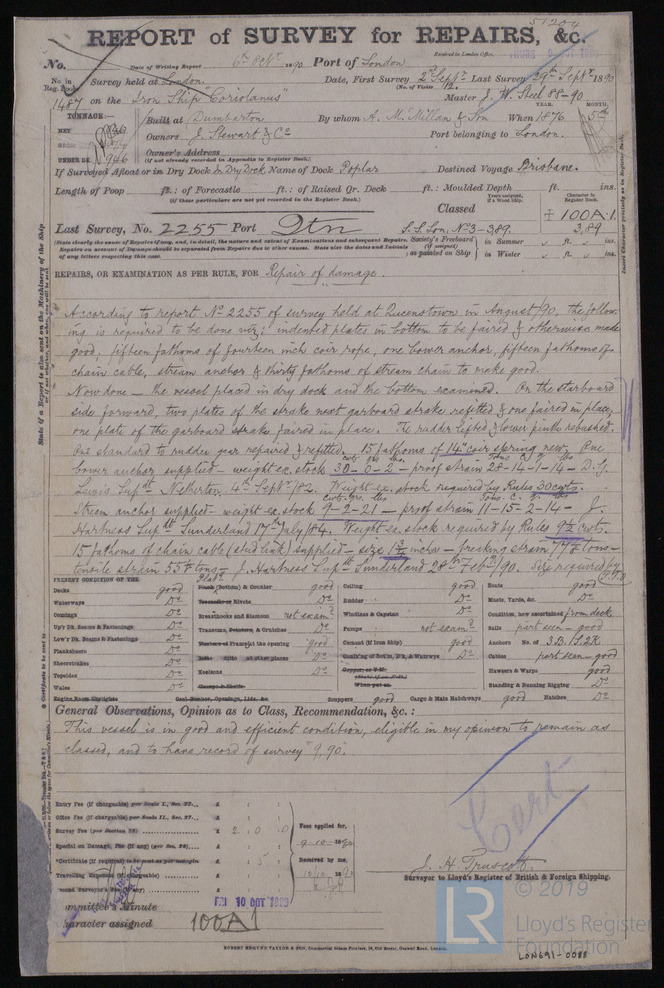 51204
REPORT of SURVEY for REPAIRS, &c.
Received in London Office,
No. Date of Writing Report 6th Octr. 1890 Port of London
No. in Reg. Book Survey held at London. Date, First Survey 2d Septr. Last Survey 29th Septr. 1890
(No. of Visits 12.
1487 on the Iron Ship "Coriolanus" Master J. W. Steel 88-90
TONNAGE:—
YEAR. MONTH.
Built at Dumbarton By whom A. McMillan & Son When 1876 5th
NET
GROSS
Owners J. Stewart & Co Port belonging to London.
Owner's Address
UNDER DK. 946
(If not already recorded in Appendix to Register Book.)
If Surveyed Afloat or in Dry Dock In Dry Dock Name of Dock Poplar Destined Voyage Brisbane.
Length of Poop ft.: of Forecastle ft.: of Raised Qr. Deck ft.: Moulded Depth ft. ins.
(If these particulars are not yet recorded in the Register Book.)
Classed
Years assigned, if a Wood Ship.
Character in Register Book.
✠ 100A1.
Last Survey, No. 2255 Port Qtn S.S. Lon. No 3-3,89. 3,89
Society's Freeboard (if assigned) as painted on Ship in Summer ft. ins.
in Winter ft. ins.
REPAIRS, OR EXAMINATION AS PER RULE, FOR Repair of damage.
According to report No 2255 of survey held at Queenstown in August /90, the follow-
ing is required to be done viz: indented plates in bottom to be faired & otherwise made
good, fifteen fathoms of fourteen inch coir rope, one bower anchor, fifteen fathoms of
chain cable, stream anchor & thirty fathoms of stream chain to make good.
Now done — the vessel placed in dry dock and the bottom examined. On the starboard
side forward, two plates of the strake next garboard strake refitted & one faired in place,
one plate of the garboard strake faired in place. The rudder lifted & lower pintle rebushed.
One standard to rudder gear repaired & refitted. 15 fathoms of 14" coir spring new. One
bower anchor supplied - weight ex. stock 30-0-2 - proof strain 28-14-1-14 - D. G.
Lewis Supdt. Netherton 4th Septr/82. Weight ex. stock required by Rules 30cwts.
Stream anchor supplied - weight ex. stock 9-2-21 - proof strain 11-15-2-14 - J.
Hartness Supdt. Sunderland 17th July/84. Weight ex. stock required by Rules 9½ cwts.
15 fathoms of chain cable (stud link) supplied - size inches - breaking strain tons -
tensile strain 55 tons - J. Hartness Supdt. Sunderland 28th Feby/90. Size required by
PRESENT CONDITION OF THE
Decks good
Waterways Do
Comings Do
Up'r Dk. Beams & Fastenings Do
Low'r Dk. Beams & Fastenings Do
Planksheers Do
Sheerstrakes Do
Topsides Do
Wales Do
Plate
Plank (Bottom) & Counter good
Treenails or Rivets Do
Breasthooks and Stemson not exam'd
Transoms, Pointers, & Crutches Do
Timbers of Frame at the opening good
Ditto ditto at other places Do
Keelsons Do
Ceiling good
Rudder Do
Windlass & Capstan Do
Pumps not exam'd
Cement (if Iron Ship) good
Caulking of Bottm, Dk, & Waterways Do
Boats good
Masts, Yards, &c. Do
Condition, how ascertained from deck
Sails part seen - good
Anchors No. of 3B.1S.2K
Cables part seen - good
Hawsers & Warps good
Standing & Running Rigging Do
Engine Room Skylights Coal Bunker, Openings, Lids, &c. Scuppers good Cargo & Main Hatchways good Hatches Do
General Observations, Opinion as to Class, Recommendation, &c.:
This vessel is in good and efficient condition, eligible in my opinion to remain as
classed, and to have record of survey "9,90."
Entry Fee (if chargeable) per Scale I., Sec. 27. £
Office Fee (if chargeable) per Scale II., Sec. 27. £
Survey Fee (per Section 28) £ 2 0 0
Special or Damage, Fee (if any) (per Sec. 28) £
Certificate (if required) to be sent as per margin £ 5
Travelling Expenses (if chargeable) £
Fees applied for,
9-10-1890
Received by me,
Cert
J. H. Truscott
Surveyor to Lloyd's Register of British & Foreign Shipping.
Committee's Minute FRI 10 OCT 1890
Character assigned 100A1
ROBERT EDMUND TAYLOR & SON, Commercial Steam Printers, 19, Old Street, Goswell Road, London.
© 2019
LR Lloyd's Register
Foundation
LON691-0088